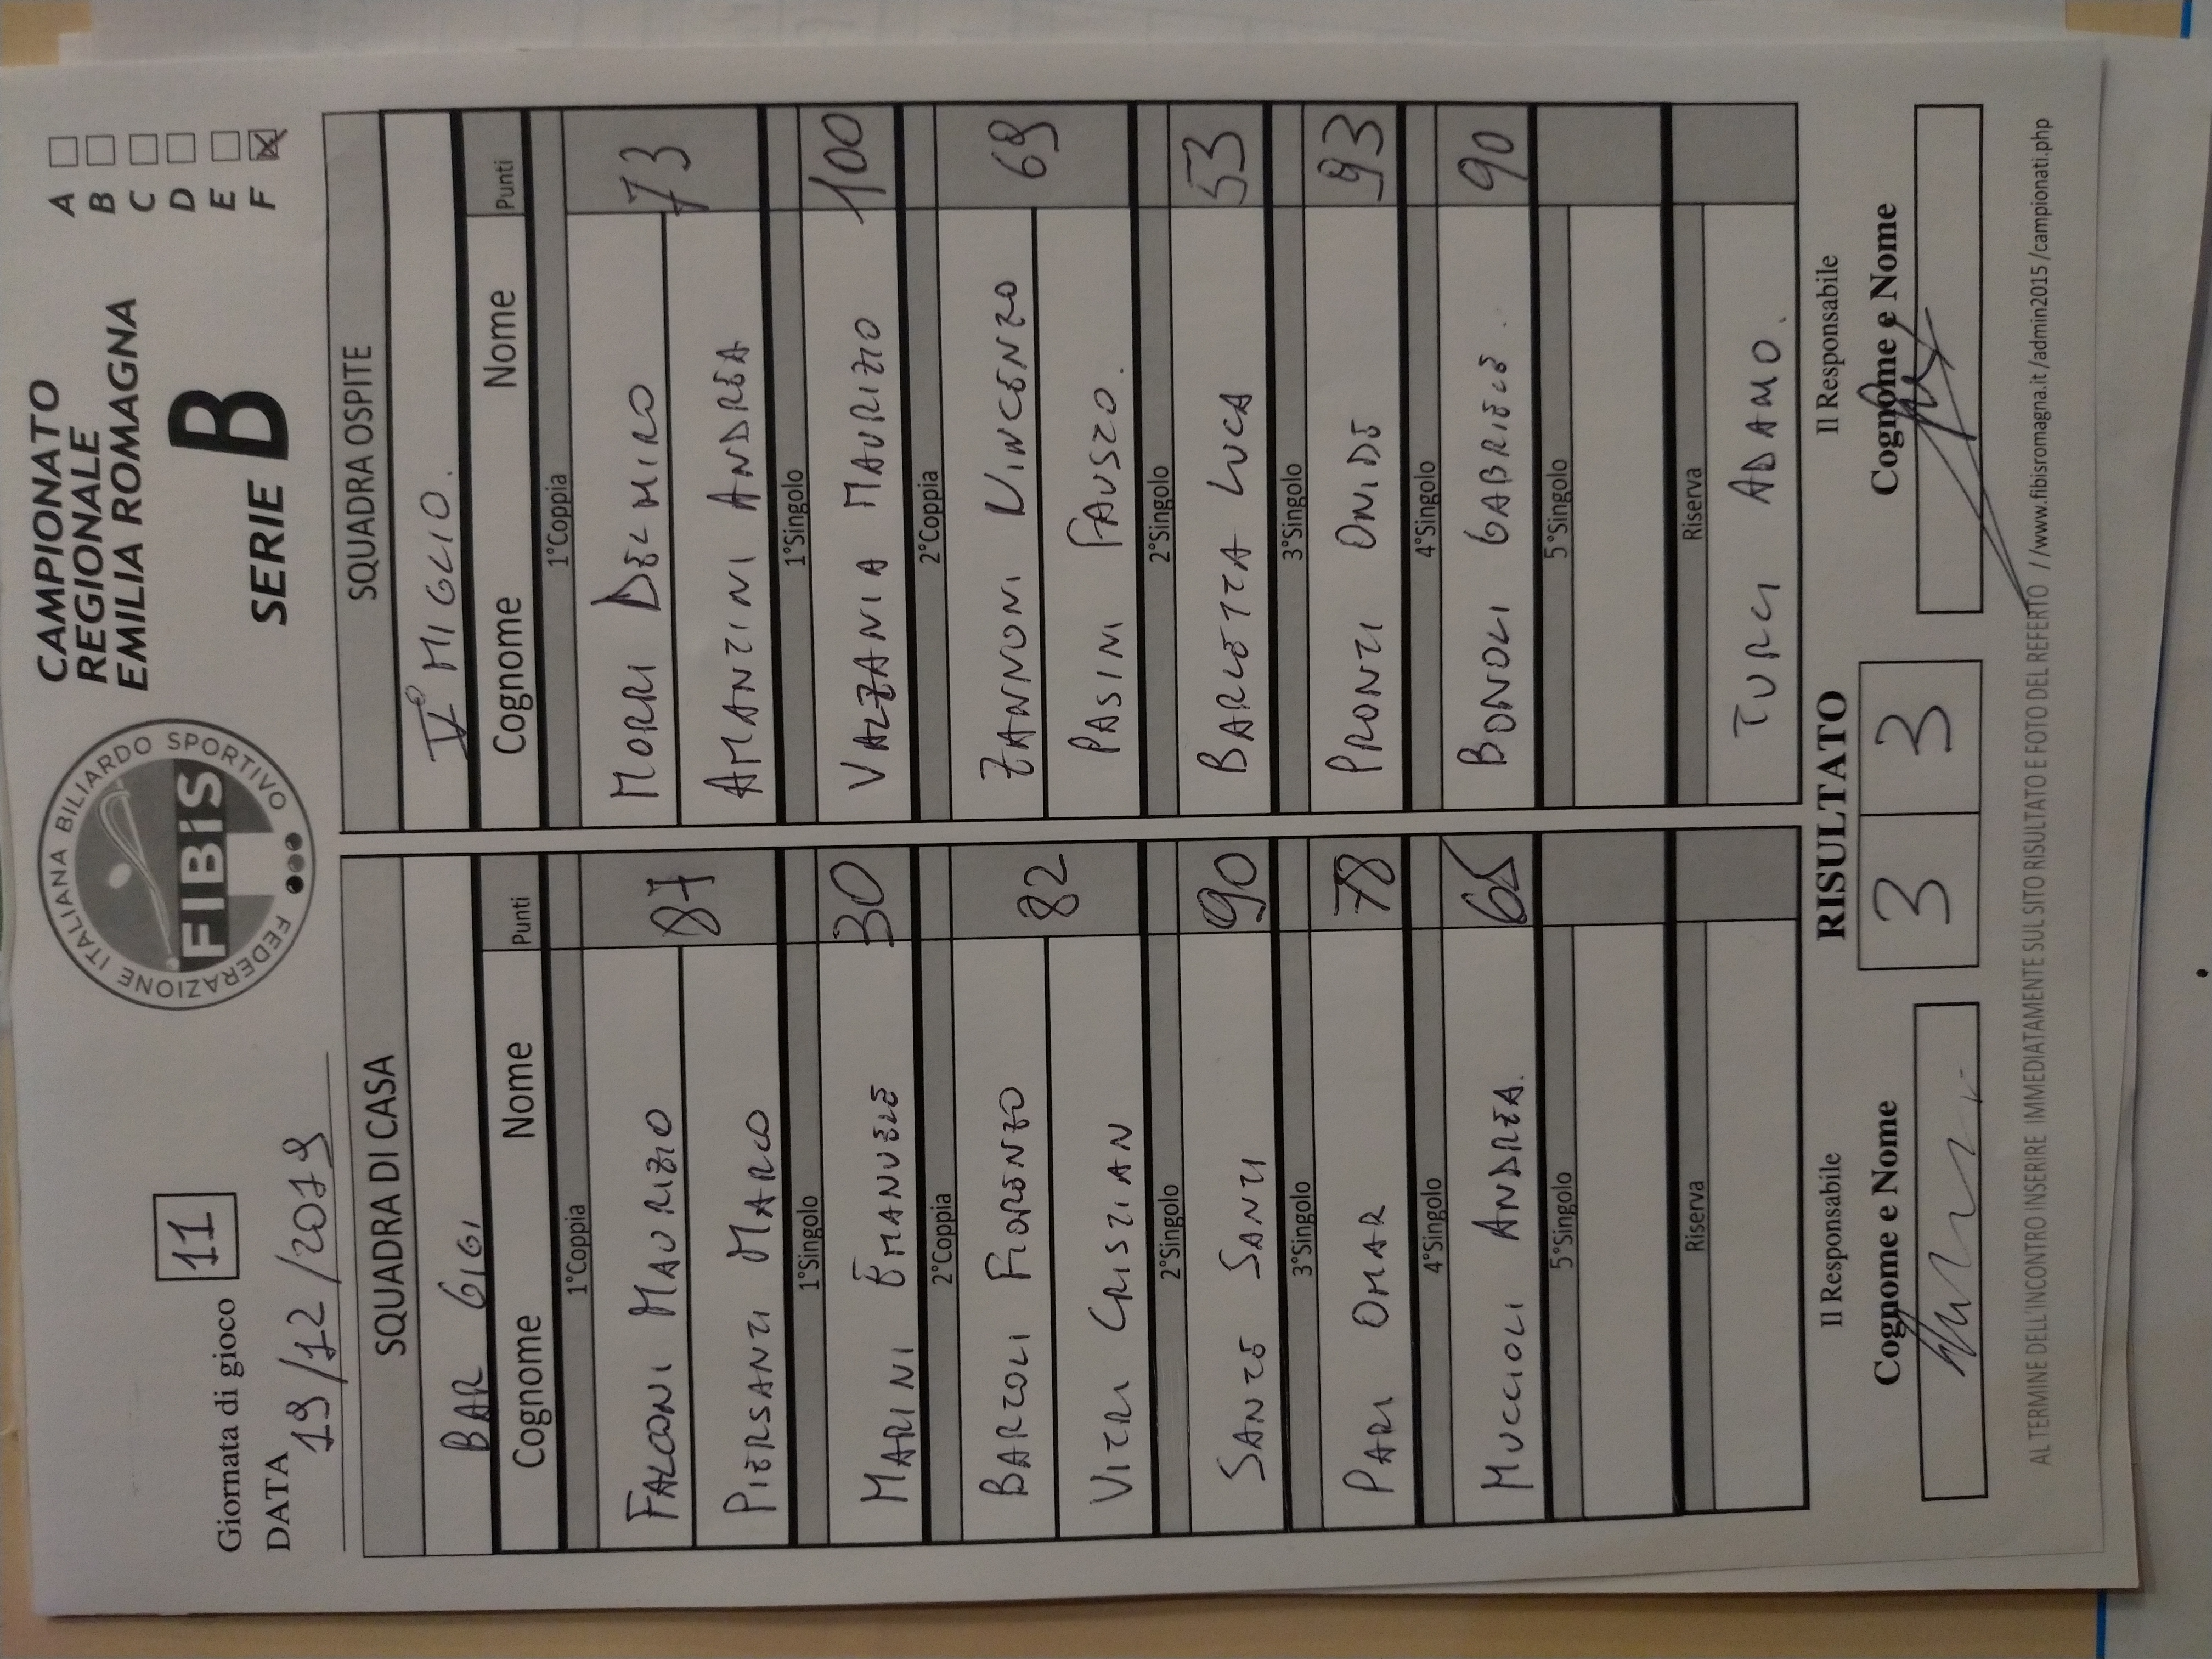 Giornata di gioco 11
DATA 19/12/2019
FEDERAZIONE ITALIANA BILIARDO SPORTIVO
FIBiS
CAMPIONATO
REGIONALE
EMILIA ROMAGNA
SERIE B
A
B
C
D
E
F
SQUADRA DI CASA SQUADRA OSPITE
BAR GIGI V° MIGLIO.
Cognome Nome Punti Cognome Nome Punti
1°Coppia 1°Coppia
FALCONI MAURIZIO 87 MORRI DELMIRO 73
PIERSANTI MARCO AMANTINI ANDREA
1°Singolo 1°Singolo
MARINI EMANUELE 30 VALZANIA MAURIZIO 100
2°Coppia 2°Coppia
BARTOLI FIORENZO 82 ZANNONI VINCENZO 69
VITRI CRISTIAN PASINI FAUSTO.
2°Singolo 2°Singolo
SANTE SANTI 90 BARLETTA LUCA 53
3°Singolo 3°Singolo
PARI OMAR 78 PRONTI ONIDE 93
4°Singolo 4°Singolo
MUCCIOLI ANDREA. BONOLI GABRIELE. 90
5°Singolo 5°Singolo
Riserva Riserva
TURCI ADAMO.
Il Responsabile RISULTATO Il Responsabile
Cognome e Nome 3 3 Cognome e Nome
AL TERMINE DELL'INCONTRO INSERIRE IMMEDIATAMENTE SUL SITO RISULTATO E FOTO DEL REFERTO //www.fibisromagna.it/admin2015/campionati.php